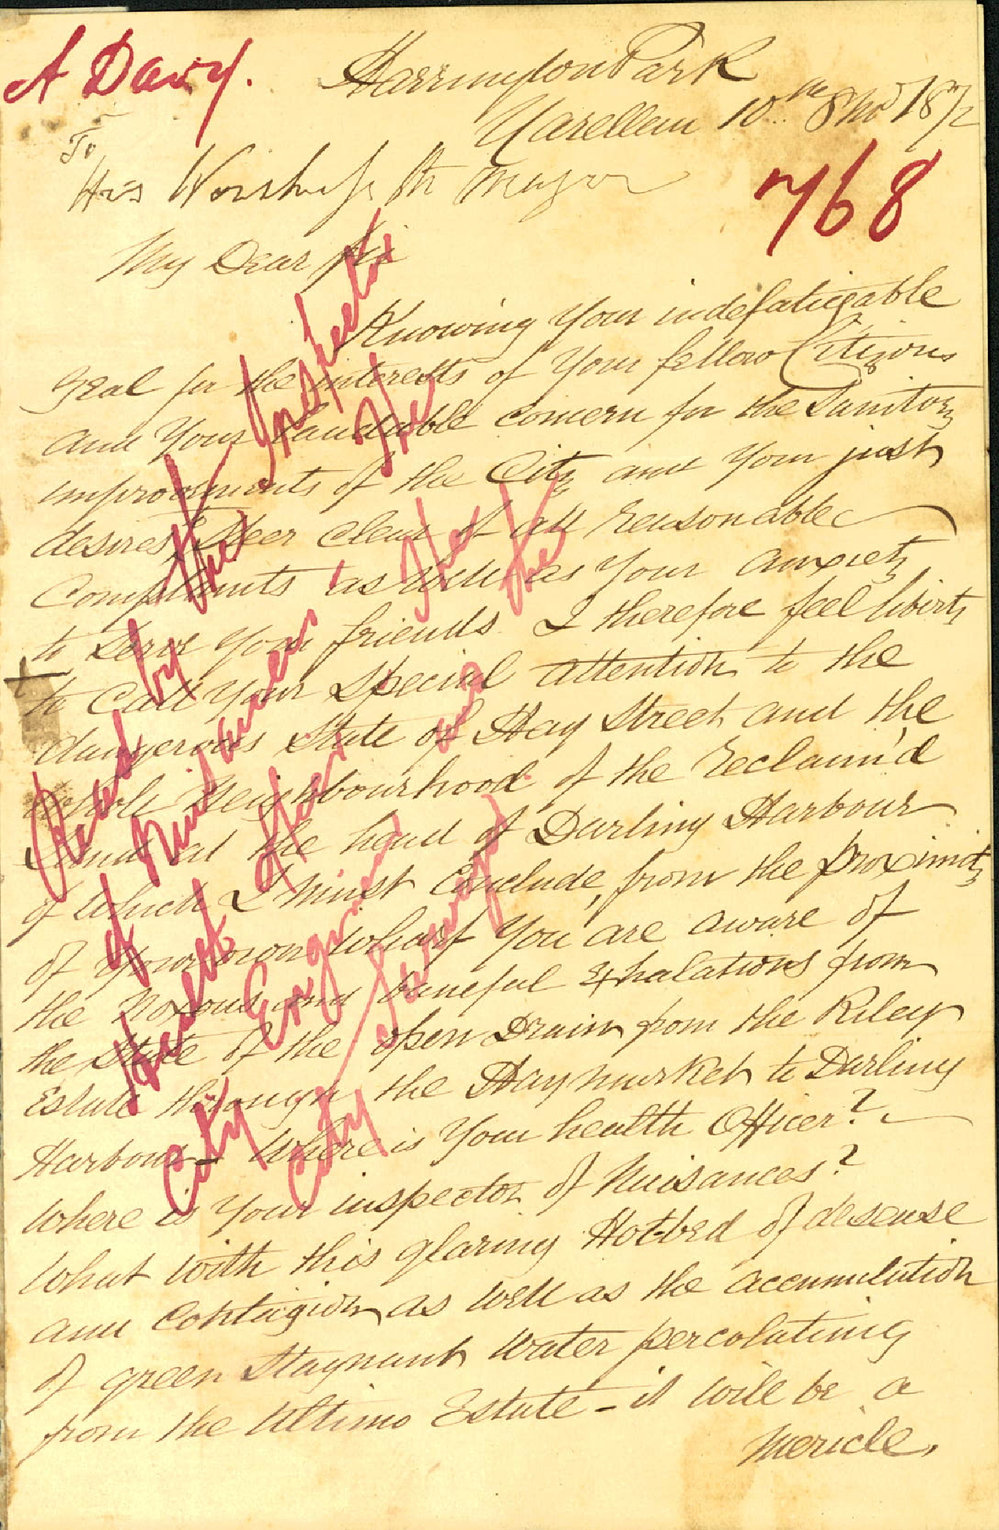 A Davy.
Harrington Park
Narellan 10th 8mo 1872
768
To
His Worship the Mayor
My Dear Sir
Knowing Your indefatigable
Zeal for the interests of Your fellow Citizens
and Your laudable concern for the Sanitory
improvements of the City and Your just
desires Steer clear of all reasonable
Complaints as well as Your anxiety
to Serve Your friends I therefore feel liberty
to Call Your Special attention to the
dangerous State of Hay Street and the
whole Neighbourhood of the reclaim'd
Land at the head of Darling Harbour
of which I Must Conclude, from the proximity
of Your own Wharf You are aware of
the Noxous and baneful Exhalations from
the State of the open Drain from the Riley
Estate through the Haymarket to Darling
Harbour - Where is Your health Officer?
Where is Your inspector of Nuisances?
What with this glaring Hot-bed of desease
and Contagion as well as the accumulation
of green Stagnant Water percolating
from the Ultimo Estate - it will be a
Mericle,
Read by the Inspector
of Nuisances the
Health Officer the
City Engineer and the
City Surveyor